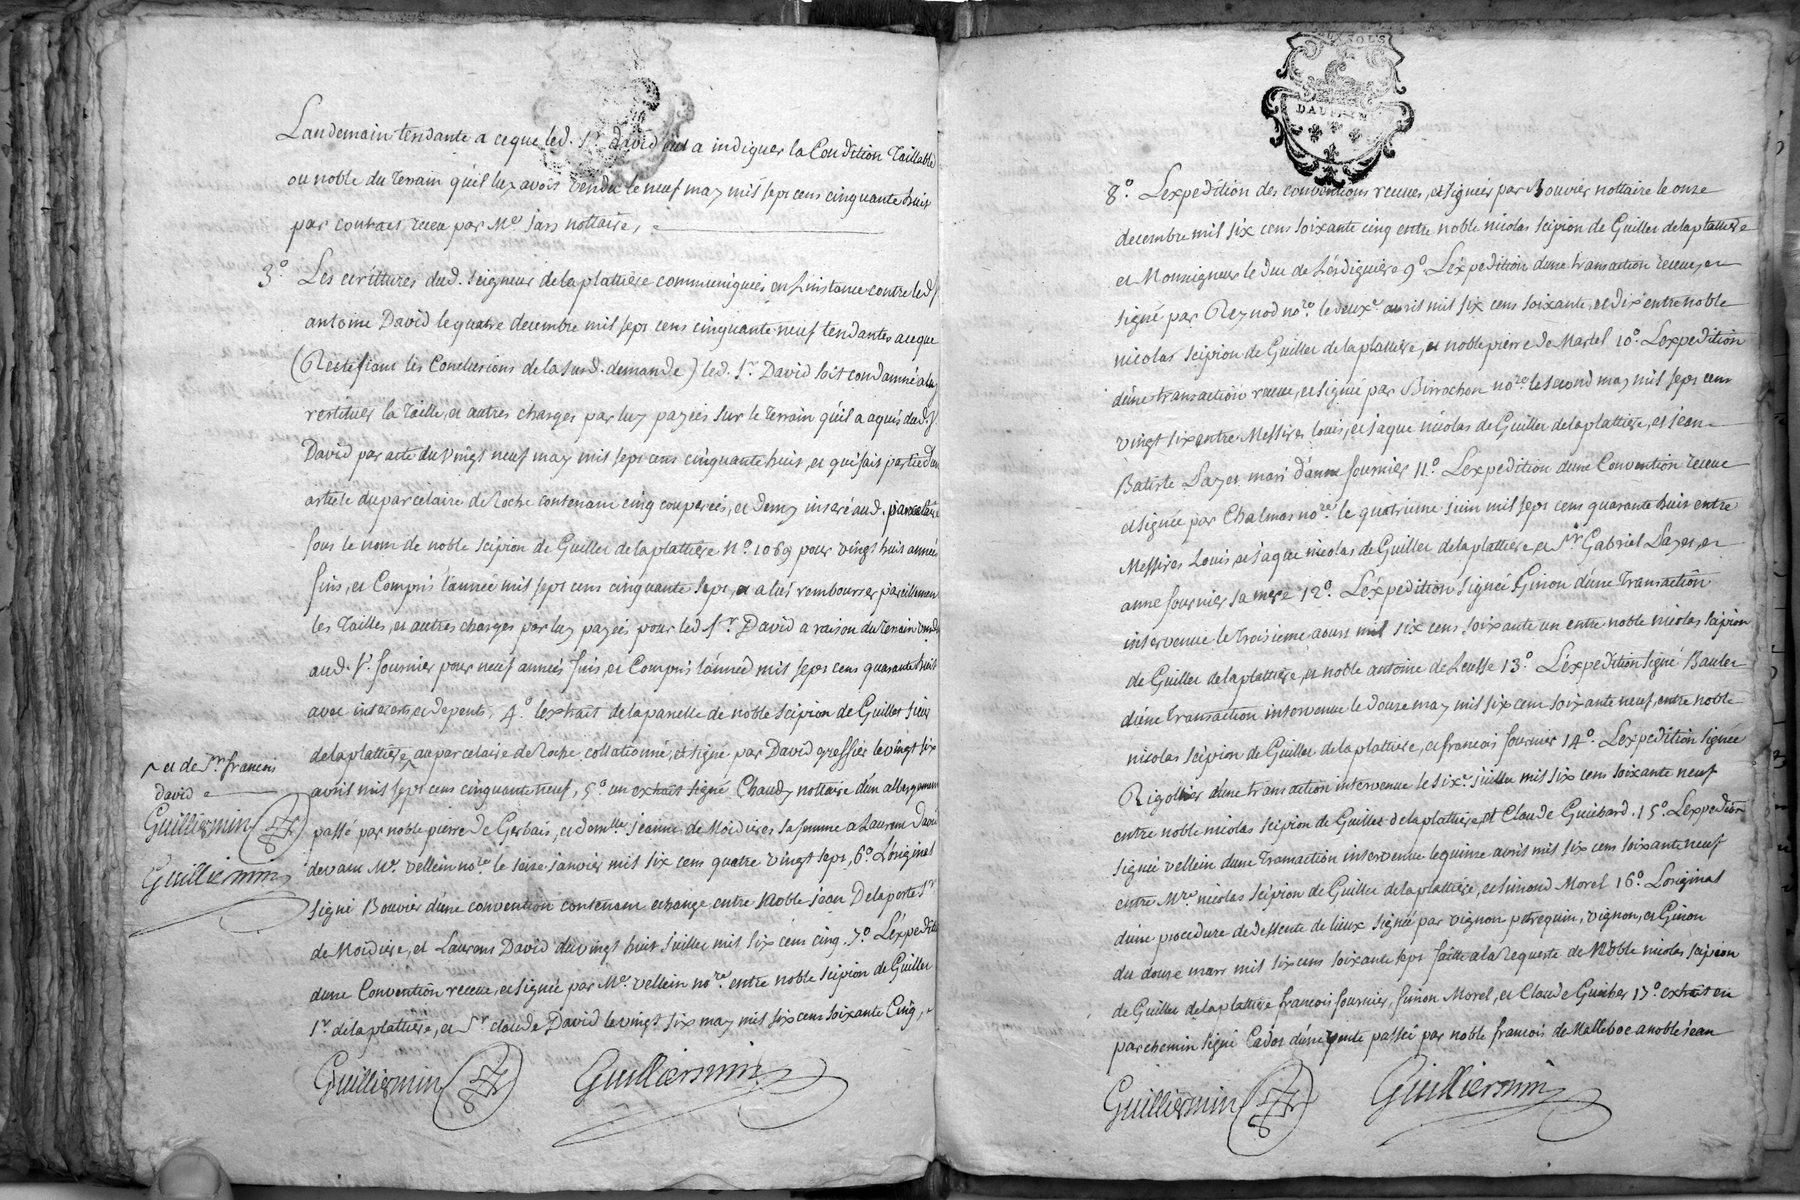 Landemain tendante a ceque led. Sr. David eut a indiquer la Condition Taillable
ou noble du terrain qu'il luy avoit vendu le neuf may mil sept cens cinquante huit
par contract receu par Me. Jars nottaire,
3° Les ecrittures dud. seigneur delaplattiere communiquées en Linstance contre led. S.
antoine David le quatre decembre mil sept cens cinquante neuf tendantes aceque
(Restifiant les Conclusions de la susd. demande) led. Sr. David soit condamné a luy
restituer la Taille, et autres charges par luy payées sur le terrain qu'il a aquis dud. S.
David par acte du vingt neuf may mil sept cens cinquante huit, et qui fait partie d'un
article du parcelaire de Roche contenant cinq couperées, et demy inseré aud. parcelaire
sous le nom de noble Scipion de Guiller delaplattiere N°. 1069 pour vingt huit années
finis, et Compris l'année mil sept cens cinquante sept, et a les rembourser pareillement
les Tailles, et autres charges par luy payées pour led. Sr. David a raison du terrain vendu
aud. Sr. fournier pour neuf années finis, et Compris l'année mil sept cens quarante huit
avec interets, et depents, 4.° lextrait de la panelle de noble Scipion de Guiller sieur
delaplattiere, au parcelaire de Roche collationné, et signé par David greffier le vingt six
^ et de Sr. francois
david
avril mil sept cens cinquante neuf, 5° un extrait signé Chaudy nottaire d'un albergement
Guilliermin
passé par noble pierre de Gerbais, et domlle. Jeanne de Moidieres sa femme a Laurent David
devant Me. vellein nore. le seize janvier mil six cens quatre vingt sept, 6° L'original
Guilliermin
signé Bouvier d'une convention contenant echange entre Noble jean Delaporte Sr.
de Moidiere, et Laurens David du vingt huit Juillet mil six cens cinq. 7.° L'expedition
dune Convention receue, et signée par Me. vellein nore. entre noble Scipion de Guiller
Sr. delaplattiere, et Sr. claude David le vingt six may mil six cens soixante Cinq,
Guilliermin Guilliermin
DAUPHINE
8.° Lexpedition des conventions receues, et signées par Bouvier nottaire le onze
decembre mil six cens soixante cinq entre noble nicolas Scipion de Guiller delaplattiere
et Monseigneur le duc de Lesdiguiere 9° L'expedition dune transaction receue, et
signé par Reynod nore. le deuxe. avril mil six cens soixante, et dix entre noble
nicolas Scipion de Guiller delaplattiere, et noble pierre de Martel 10.° Lexpedition
d'une transaction receue, et signée par Birrochon nore. le second may mil sept cens
vingt six entre Messires louis, et jaque nicolas de Guiller delaplattiere, et jean
Batiste Layet mari d'anne fournier 11.° L'expedition d'une Convention receue
et signée par Chalmas nore. le quatrieme juin mil sept cens quarante huit entre
Messires Louis, et jaque nicolas de Guiller delaplattiere, et Sr. Gabriel Layet, et
anne fournier sa mere 12°. L'expedition signée Ginon d'une Transaction
intervenue le troisieme aoust mil six cens soixante un entre noble nicolas Scipion
de Guiller delaplattiere, et noble antoine de Leusse 13° L'expedition signé Bauler
d'une Transaction intervenue le douze may mil six cens soixante neuf, entre noble
nicolas Scipion de Guiller delaplattiere, et francois fournier 14°. L'expedition signée
Rigollier d'une transaction intervenue le sixe. juillet mil six cens soixante neuf
entre noble nicolas Scipion de Guiller delaplattiere, et Claude Guichard. 15.° L'expedition
signée vellein dune Transaction intervenue le quinze avril mil six cens soixante neuf
entre Mre. nicolas Scipion de Guiller delaplattiere, et Simond Morel 16.° Loriginal
d'une procedure de dessente de lieux signée par vignon petrequin, vignon, et Ginon
du douze mars mil six cens soixante sept faitte a la Requeste de Noble nicolas Scipion
de Guiller delaplattiere francois fournier, simon Morel, et Claude Guicher 17.° extrait en
parchemin signé Cados d'une vente passée par noble francois de Malleboc a noble jean
Guilliermin Guilliermin